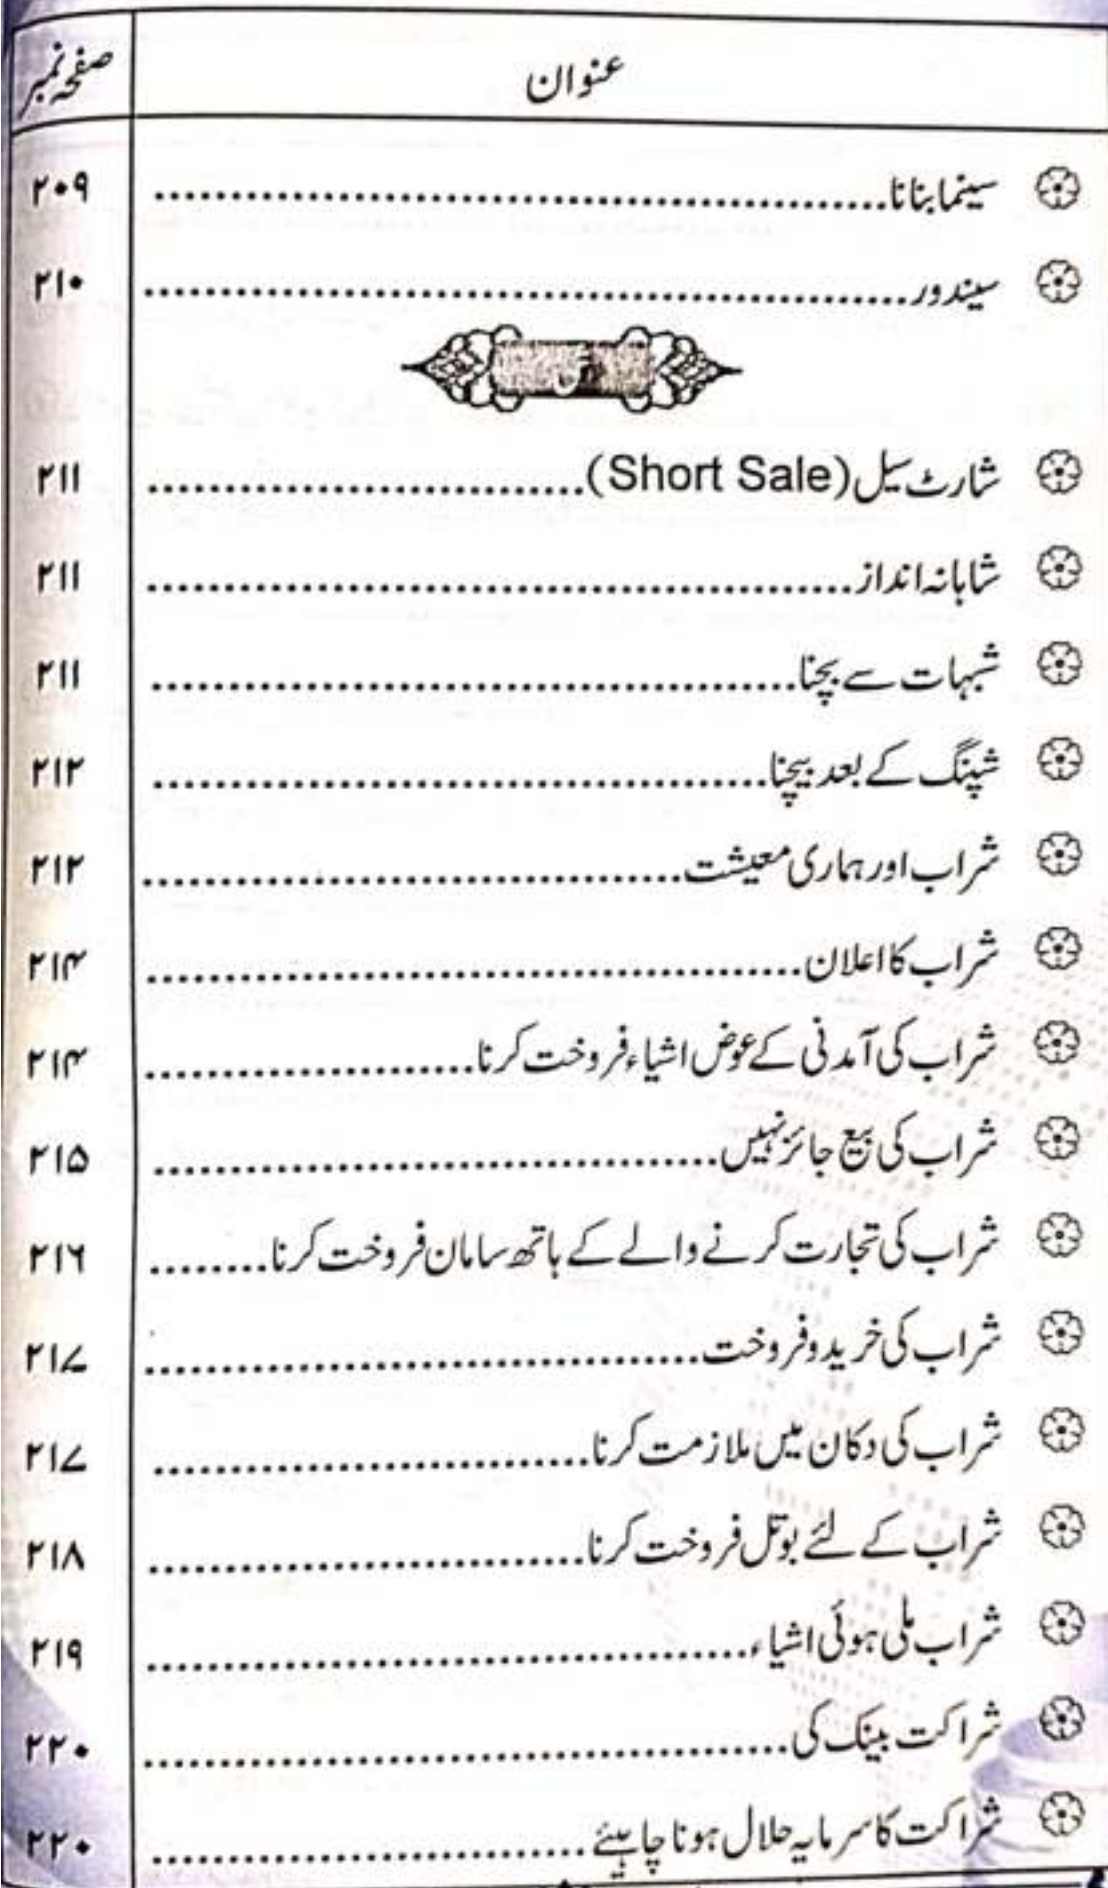 عنوان صفحہ نمبر
سینما بنانا ۲۰۹
سیندور ۲۱۰
ش
شارٹ سیل (Short Sale) ۲۱۱
شاہانہ انداز ۲۱۱
شبہات سے بچنا ۲۱۱
شپنگ کے بعد بیچنا ۲۱۲
شراب اور ہماری معیشت ۲۱۲
شراب کا اعلان ۲۱۴
شراب کی آمدنی کے عوض اشیاء فروخت کرنا ۲۱۴
شراب کی بیع جائز نہیں ۲۱۵
شراب کی تجارت کرنے والے کے ہاتھ سامان فروخت کرنا ۲۱۶
شراب کی خرید و فروخت ۲۱۷
شراب کی دکان میں ملازمت کرنا ۲۱۷
شراب کے لئے بوتل فروخت کرنا ۲۱۸
شراب ملی ہوئی اشیاء ۲۱۹
شراکت بینک کی ۲۲۰
شراکت کا سرمایہ حلال ہونا چاہیئے ۲۲۰